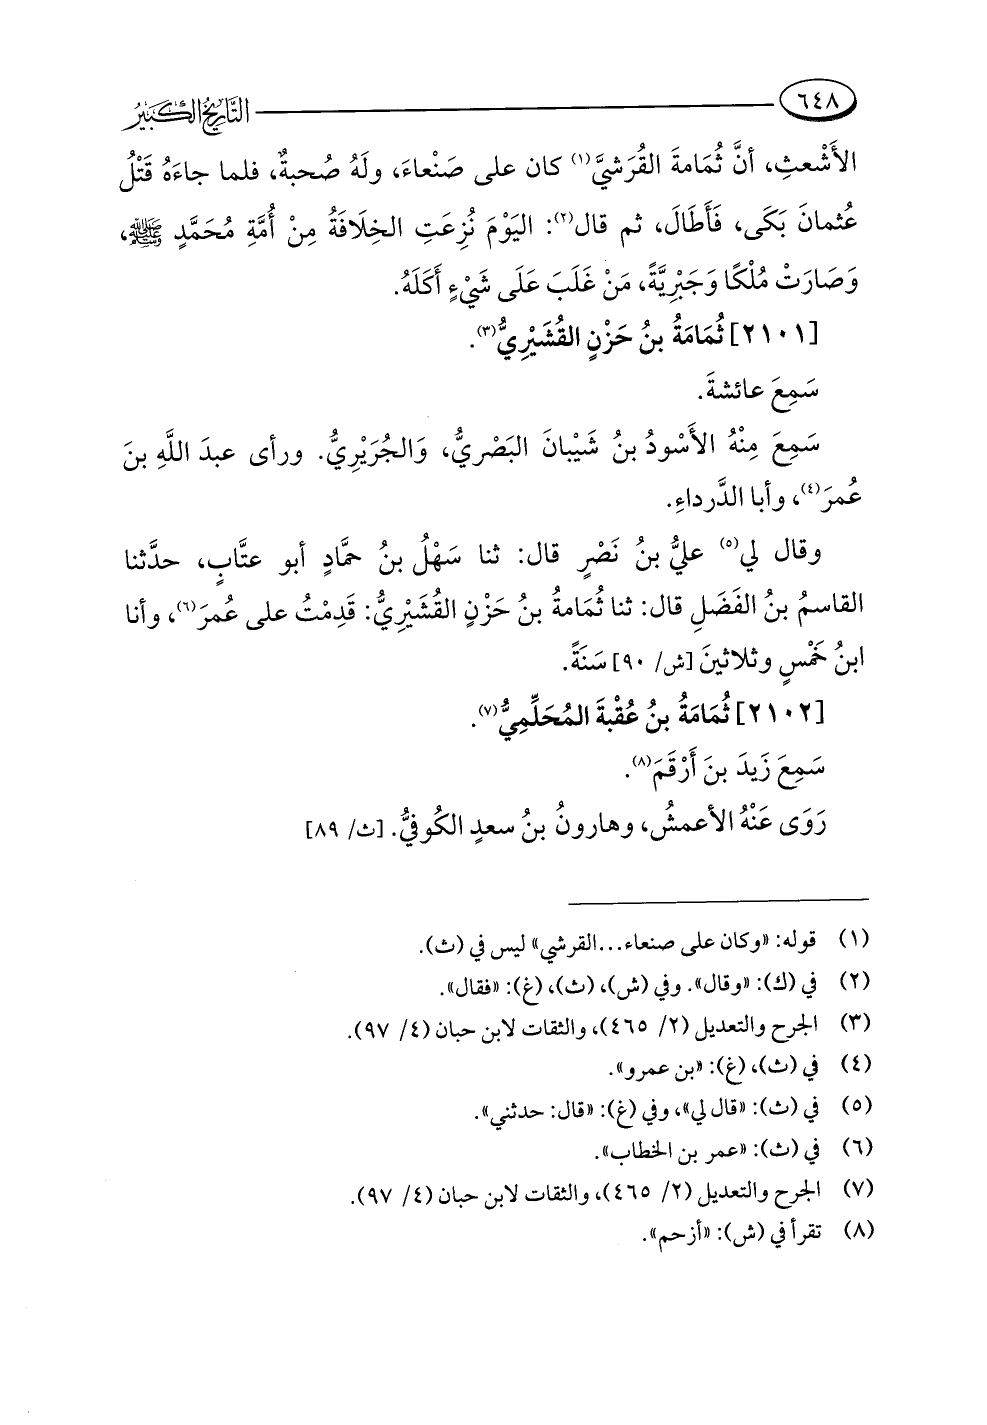 ٦٤٨
التَّارِيخُ الكَبِيرُ
الأَشْعثِ، أنَّ ثُمَامةَ القُرَشيَّ(١) كان على صَنْعاءَ، ولَهُ صُحبةٌ، فلما جاءَهُ قَتْلُ
عُثمانَ بَكَى، فَأَطَالَ، ثم قال(٢): اليَوْمَ نُزِعَتِ الخِلَافَةُ مِنْ أُمَّةِ مُحَمَّدٍ ﷺ،
وَصَارَتْ مُلْكًا وَجَبْرِيَّةً، مَنْ غَلَبَ عَلَى شَيْءٍ أَكَلَهُ.
[٢١٠١] ثُمَامَةُ بنُ حَزْنٍ القُشَيْرِيُّ(٣).
سَمِعَ عائشةَ.
سَمِعَ مِنْهُ الأَسْودُ بنُ شَيْبانَ البَصْريُّ، وَالجُرَيْرِيُّ. ورأى عبدَ اللَّهِ بنَ
عُمرَ(٤)، وأبا الدَّرداءِ.
وقال لي(٥) عليُّ بنُ نَصْرٍ قال: ثنا سَهْلُ بنُ حمَّادٍ أبو عتَّابٍ، حدَّثنا
القاسمُ بنُ الفَضَلِ قال: ثنا ثُمامةُ بنُ حَزْنٍ القُشَيْرِيُّ: قَدِمْتُ على عُمرَ(٦)، وأنا
ابنُ خَمْسٍ وثلاثينَ [ش/ ٩٠] سَنَةً.
[٢١٠٢] ثُمَامَةُ بنُ عُقْبةَ المُحَلِّمِيُّ(٧).
سَمِعَ زَيدَ بنَ أَرْقَمَ(٨).
رَوَى عَنْهُ الأعمشُ، وهارونُ بنُ سعدٍ الكُوفيُّ. [ث/ ٨٩]
(١) قوله: «وكان على صنعاء...القرشي» ليس في (ث).
(٢) في (ك): «وقال». وفي (ش)، (ث)، (غ): «فقال».
(٣) الجرح والتعديل (٢/ ٤٦٥)، والثقات لابن حبان (٤/ ٩٧).
(٤) في (ث)، (غ): «بن عمرو».
(٥) في (ث): «قال لي»، وفي (غ): «قال: حدثني».
(٦) في (ث): «عمر بن الخطاب».
(٧) الجرح والتعديل (٢/ ٤٦٥)، والثقات لابن حبان (٤/ ٩٧).
(٨) تقرأ في (ش): «أزحم».